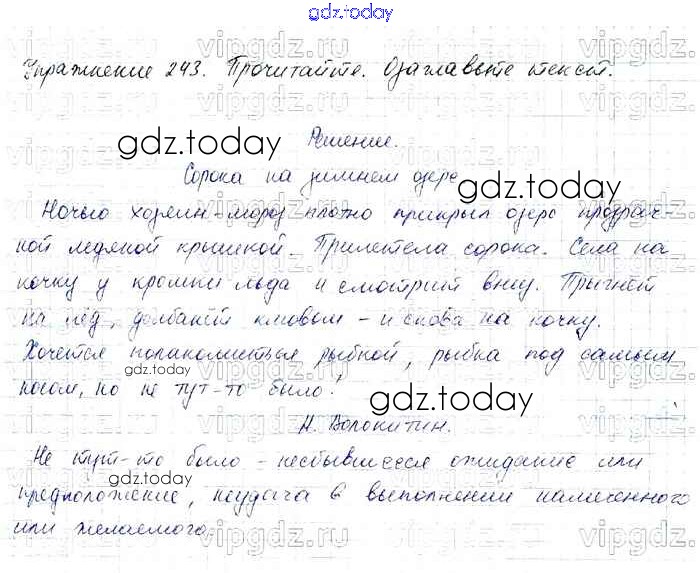 gdz.today
Упражнение 243. Прочитайте. Озаглавьте текст.
gdz.today
Решение.
Сорока на зимнем озере
gdz.today
Ночью хозяин-мороз плотно прикрыл озеро прозрач-
ной ледяной крышкой. Прилетела сорока. Села на
кочку у кромки льда и смотрит вниз. Прыгнет
на лёд, долбанёт клювом - и снова на кочку.
Хочется полакомиться рыбкой, рыбка под самым
носом, но не тут-то было!
gdz.today
Н. Волокитин.
Не тут-то было - несбывшееся ожидание или
gdz.today
предположение, неудача в выполнении намеченного
или желаемого.
vipgdz.ru